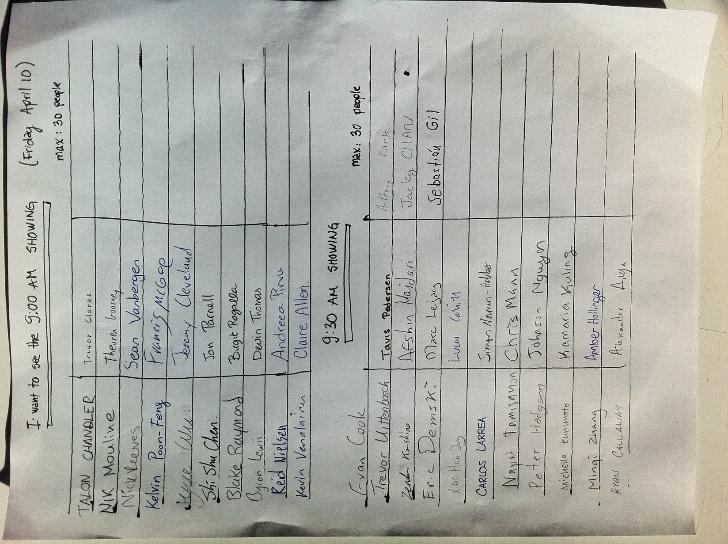 I want to see the 9:00 AM SHOWING (Friday April 10)
max: 30 people
TALON CHANDLER Trevor Clarke
Nik Mouline Thearith
Nick Reeves Sean Vanbergen
Kelvin Poon-Feng Francis McGee
Jeremy Cleveland
Shi Shu Chen Jon Parnell
Blake Raymond Birgit Rogalla
Byron Lewis Devin Thomas
Reid Nielsen Andreea Pirvu
Kevin Claire Allen
9:30 AM SHOWING
max: 30 people
Evan Cook Travis Pedersen Anthony Park
Trevor Uittenbosch Afshin Jacky CHAN
Eric Demski Marc Sebastián Gil
Lucas Cahill
CARLOS LARREA Simon
Chris Mann
Peter Hodgson Johnson Nguyen
Michelle Kunimoto Kamaria Kuling
Mingi Zhang Amber Hollinger
RYAN CALLAWAY Alexandra